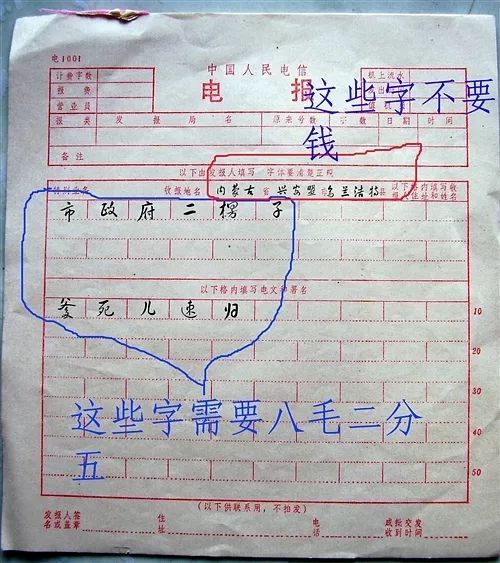 电1001
中国人民电信
电报
计费字数
报费
营业员
机上流水
这些字不要
钱
报类 发报局名 原来号数 字数 日期 时间
备注
以下由发报人填写 字体要清楚正规
特别业务 收报地名 内蒙古省 兴安盟市 乌兰浩特县 以下格内填写收报人住址和姓名
市政府二楞子
以下格内填写电文和署名
爹死儿速归
10
20
30
这些字需要八毛二分
40
五
50
(以下供联系用,不拍发)
发报人签名或盖章 住址 电话 成批交发收到时间